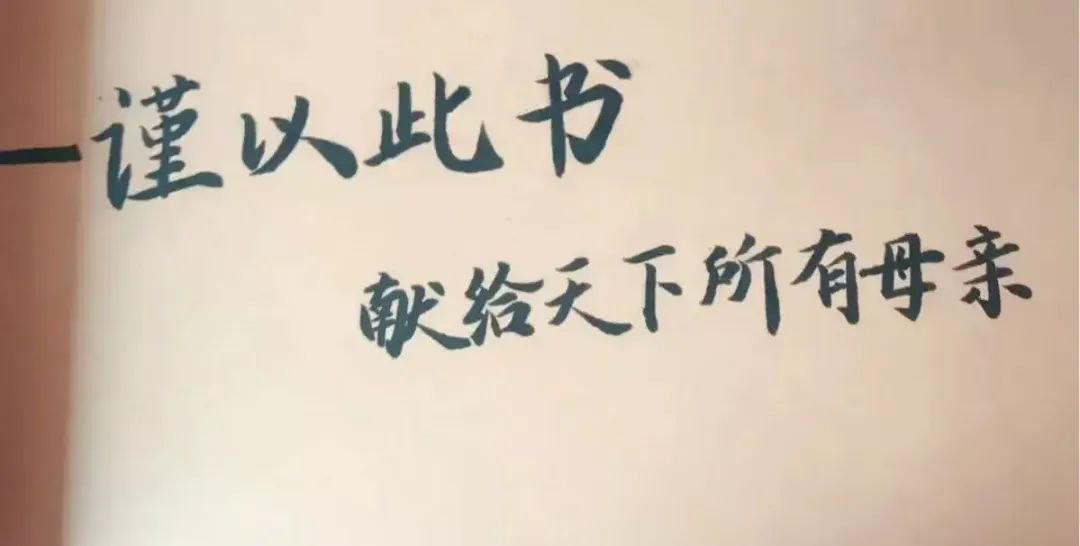 —谨以此书
献给天下所有母亲